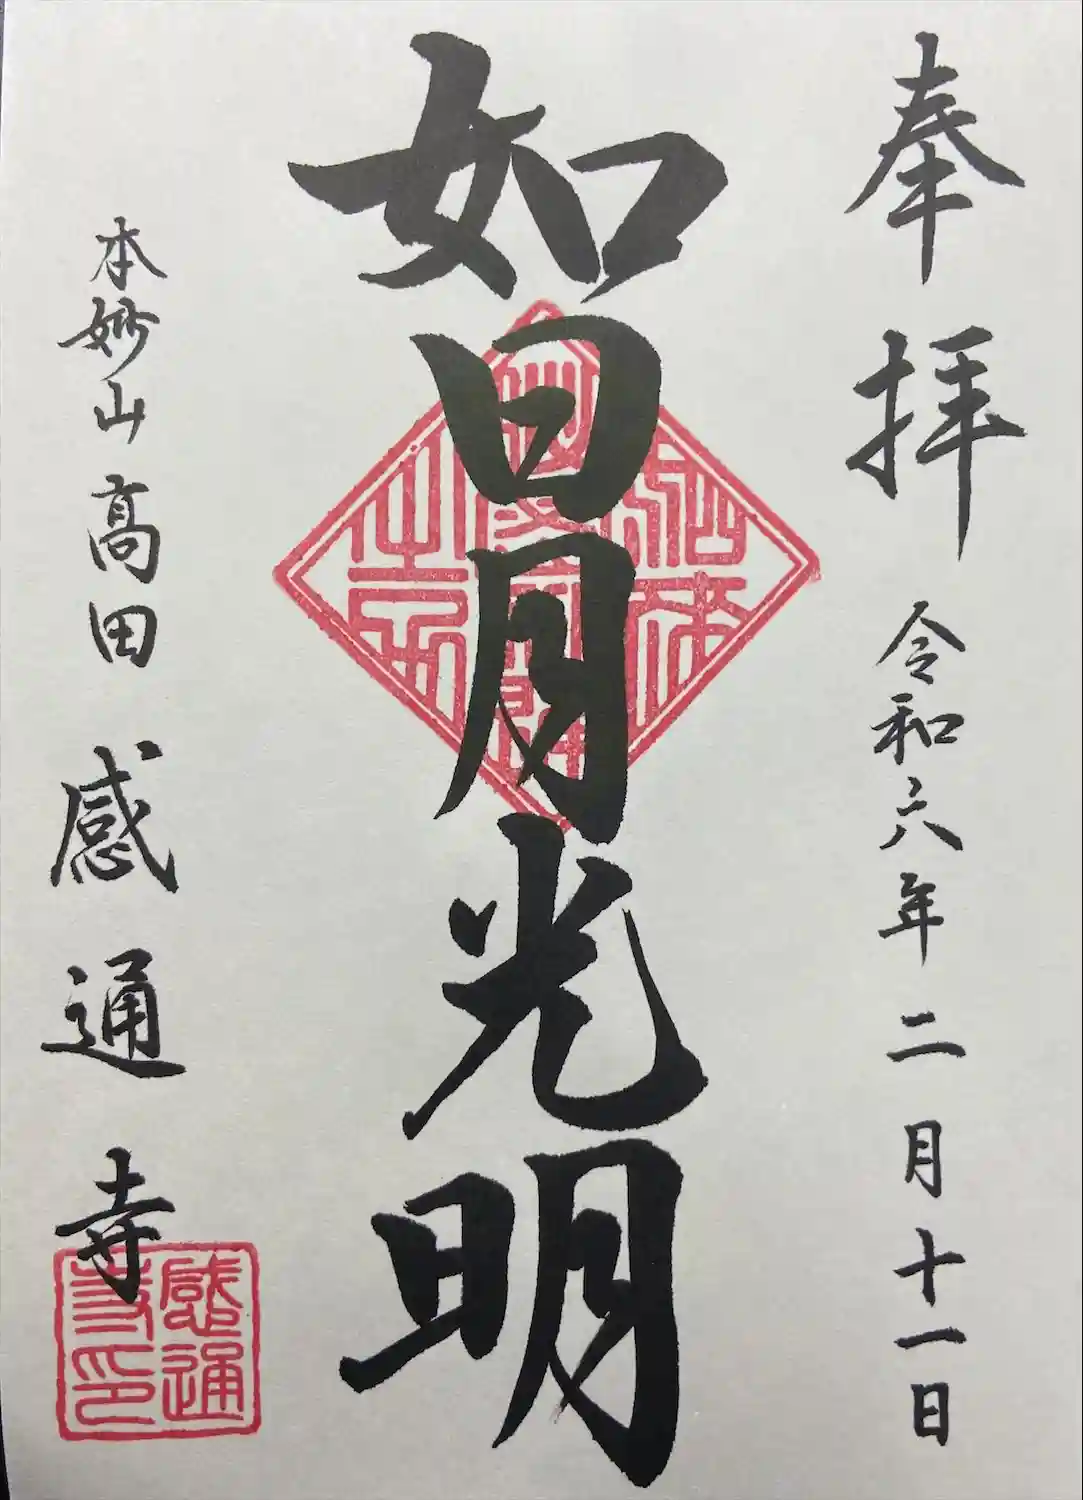 奉拝 令和六年二月十一日
如日月光明
本妙山高田 感通寺
感通
寺印